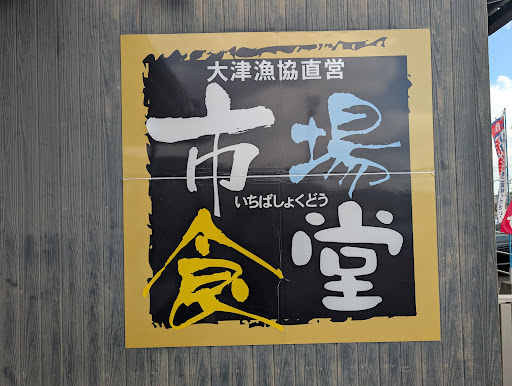 大津漁協直営
市場
いちばしょくどう
食堂